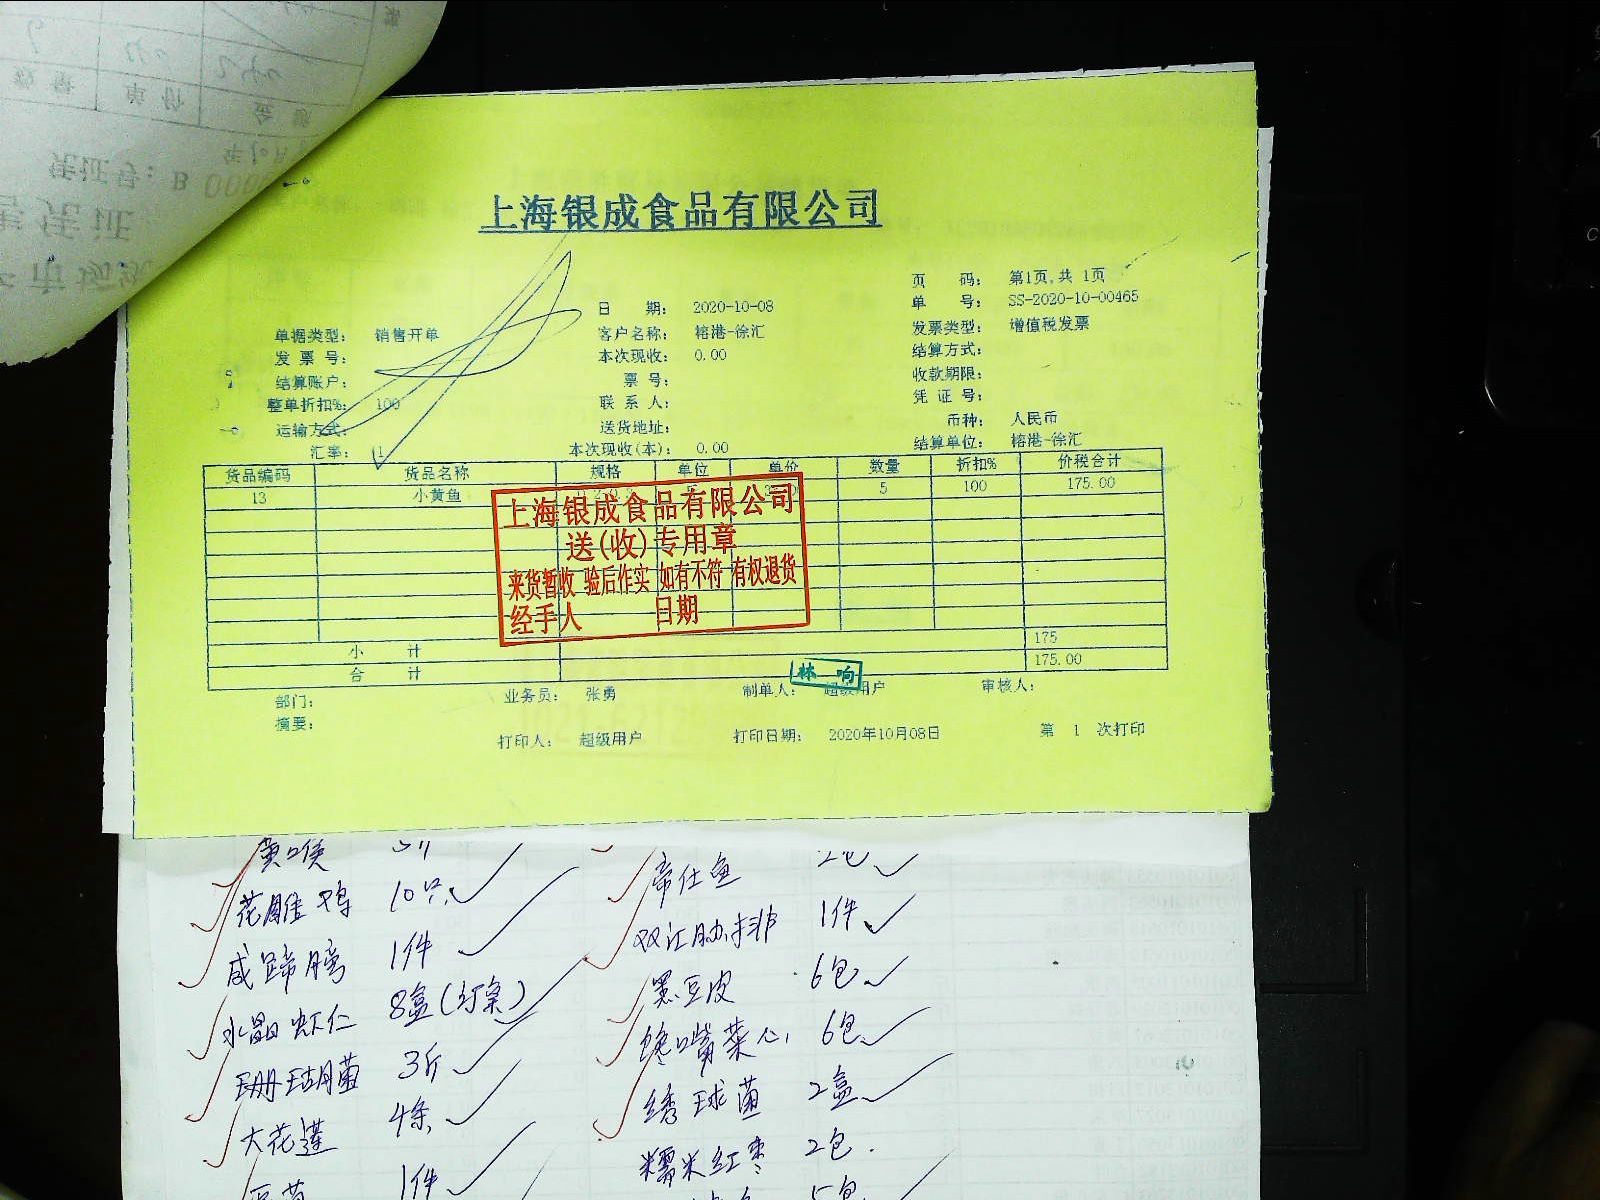 凭证号：B 000
上海银成食品有限公司
页 码： 第1页,共 1页
日 期： 2020-10-08 单 号： SS-2020-10-00465
单据类型： 销售开单 客户名称： 榕港-徐汇 发票类型： 增值税发票
发 票 号： 本次现收： 0.00 结算方式：
结算账户： 票 号： 收款期限：
整单折扣%： 100 联 系 人： 凭 证 号：
运输方式： 送货地址： 币种： 人民币
汇率： 1 本次现收(本)： 0.00 结算单位： 榕港-徐汇
货品编码 货品名称 规格 单位 单价 数量 折扣% 价税合计
13 小黄鱼 5 100 175.00
上海银成食品有限公司
送(收)专用章
来货暂收 验后作实 如有不符 有权退货
经手人 日期
小 计 175
合 计 175.00
林 响
部门： 业务员： 张勇 制单人： 超级用户 审核人：
摘要：
打印人： 超级用户 打印日期： 2020年10月08日 第 1 次打印
黄喉 帝仕鱼 2包
花雕鸡 10只 双汇肋排 1件
咸蹄膀 1件 黑豆皮 6包
水晶虾仁 8盒 馋嘴菜心 6包
珊瑚菌 3斤 绣球菌 2盒
大花莲 4条 糯米红枣 2包
1件 5包